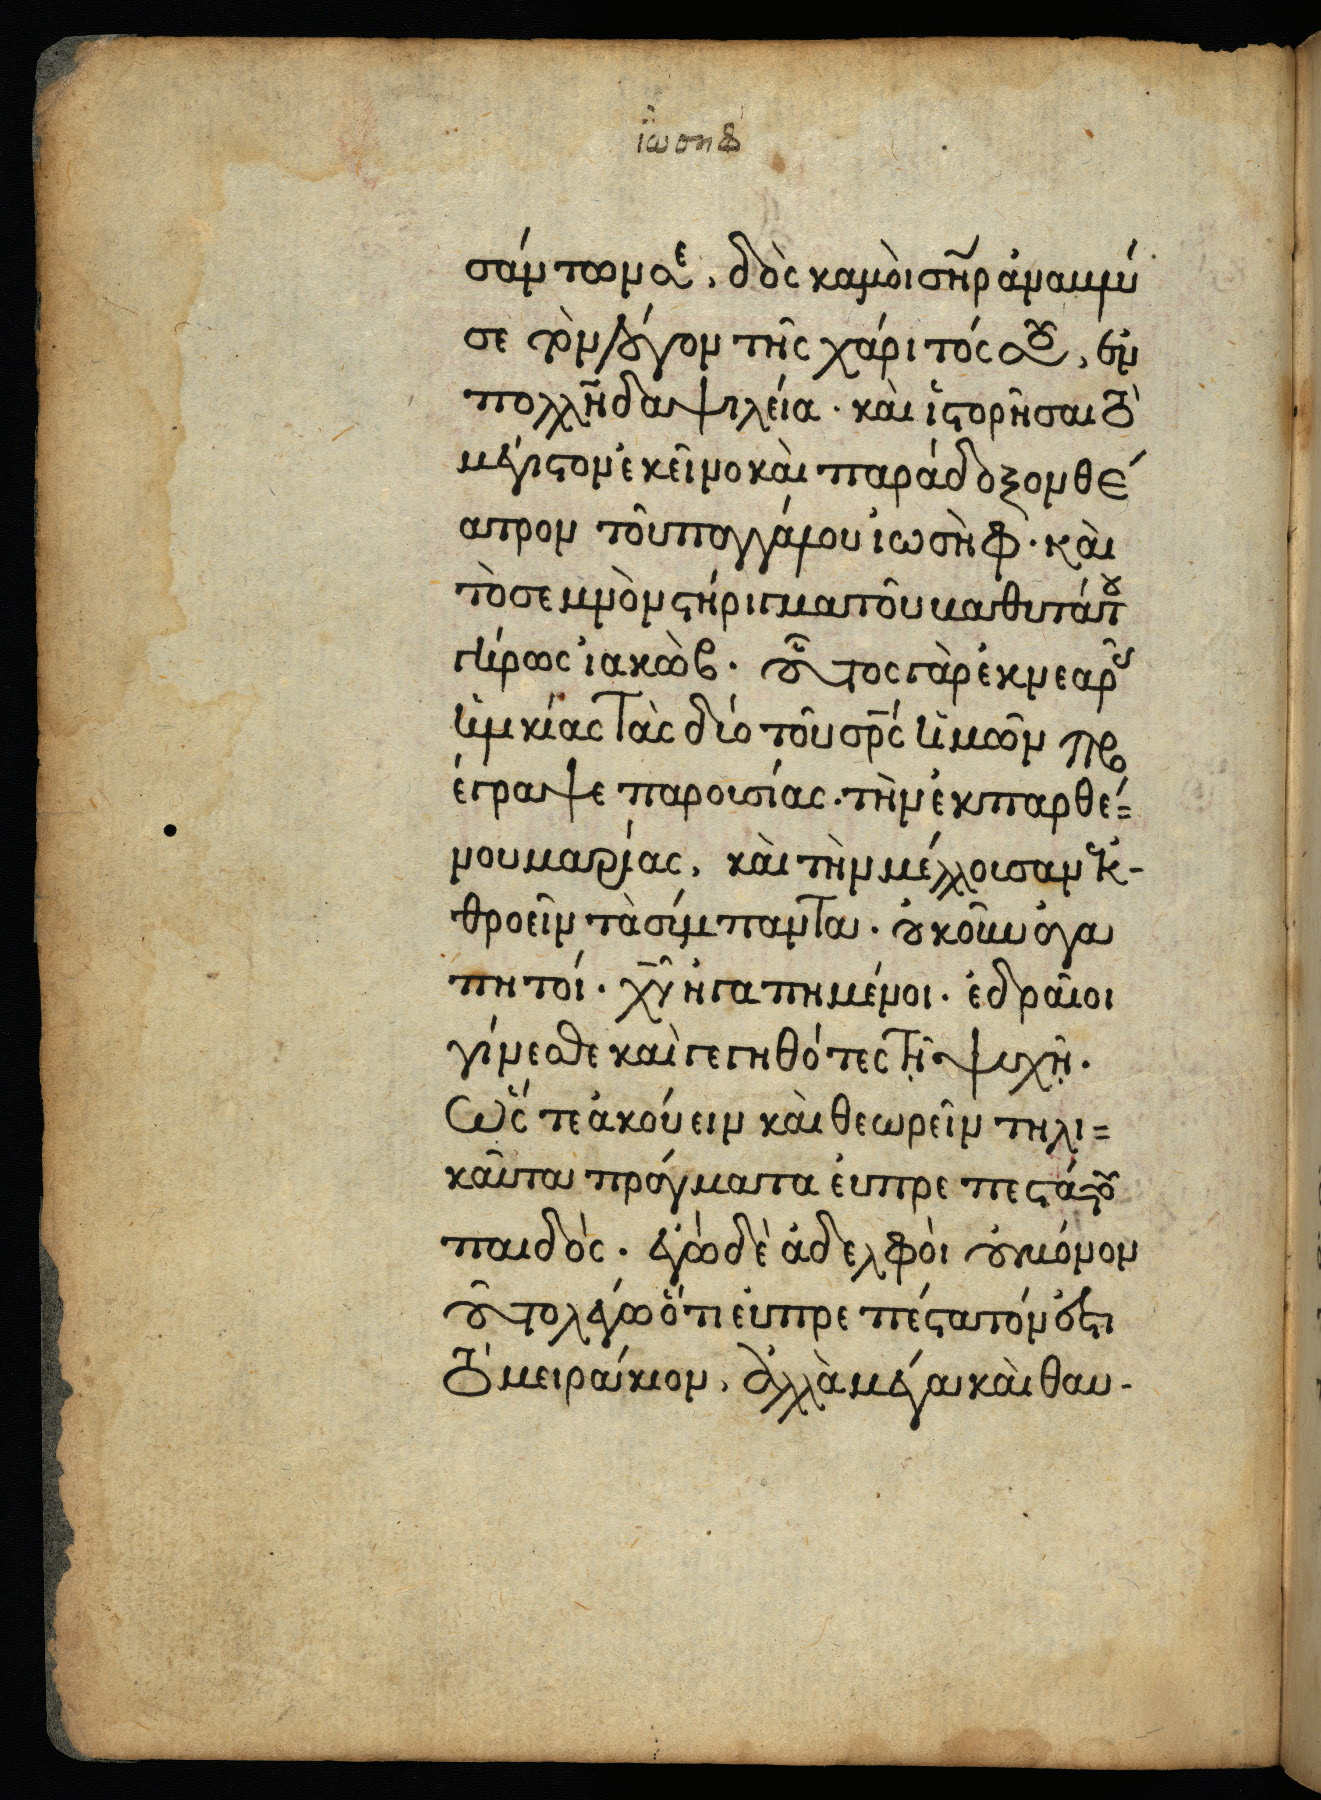 ἰωσηφ
σάντων σε, δὸς κἀμοὶ σῆρ ἀναμνύ
σε τὸν λόγον τῆς χάριτός σου, ἐν
πολλῆ δαψιλεία · καὶ ἱστορῆσαι τὸ
μέγιστον ἐκεῖνο καὶ παράδοξον θέ
ατρον τοῦ παγγάμου ἰωσὴφ · καὶ
τὸ σεμνὸν στήριγμα τοῦ
γήρως ἰακώβ · οὗτος γὰρ ἐκ νεαρᾶς
ἡνκίας τὰς δύο τοῦ σρς ἡμῶν προ
έγραψε παρουσίας · τὴν ἐκ παρθέ=
νου μαρίας, καὶ τὴν μέλλουσαν ἐκ-
θροεῖν τὰ σύμπαντα · οὐκοῦν ἀγα
πητοί · χυ ἠγαπημένοι · ἑδραῖοι
γίνεσθε καὶ γεγηθότες τῆ ψυχῆ ·
Ὥς τε ἀκούειν καὶ θεωρεῖν τηλι=
καῦτα πράγματα εὐπρεπεστάτου
παιδός · ἐγὼ δὲ ἀδελφοὶ οὐ μόνον
τοῦτο λέγω ὅτι εὐπρεπέστατόν ἐστι
τὸ μειράκιον, ἀλλὰ μέγα καὶ θαυ-